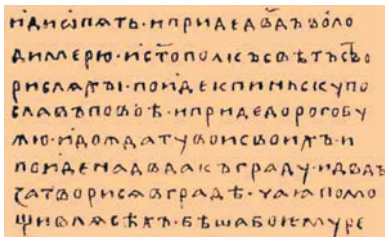 идиѡпѧть · и приде дв҃дъ воло
димерю · и ст҃ополкъ свѣтъ сво
рислалъı · поиде к пиньску по
славъ по воѣ · и приде дорогобу
жю · и дожда ту вои своихъ · и
поиде на двд҃а къ граду · и дв҃дъ
затворисѧ в градѣ · чаꙗ помо
щи в лѧсѣхъ · бѣша бо ѥму ре